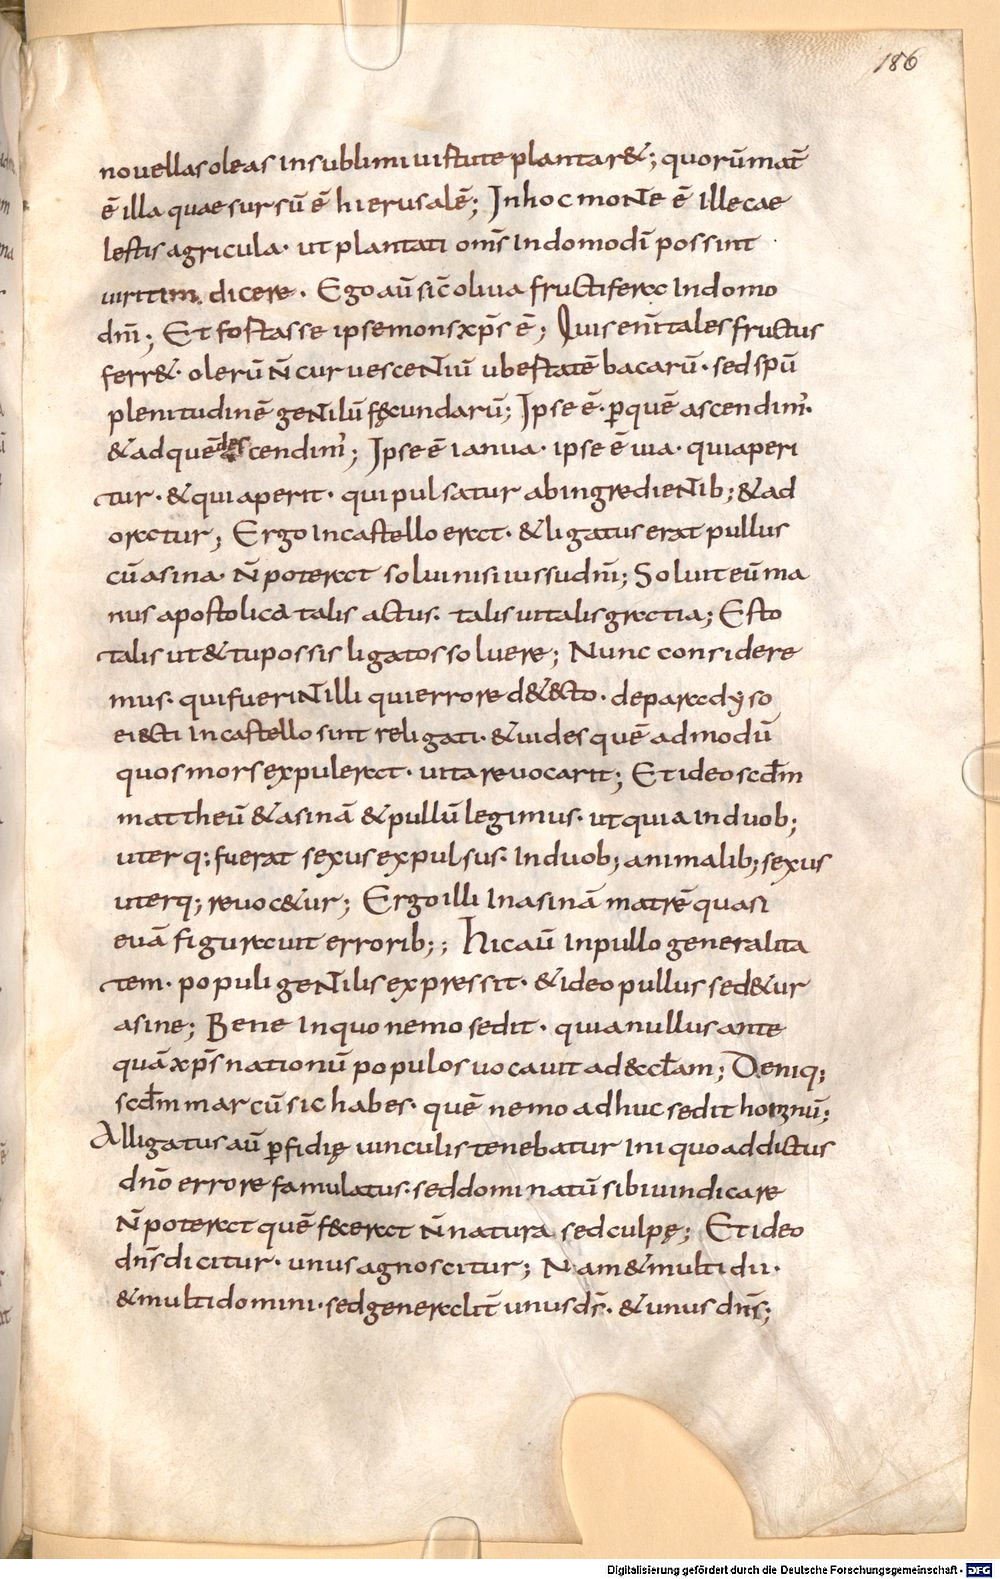 186
novellas oleas In sublimi uirtute plantar&; quorū mat̄
ē illa quae sursū ē hierusalē; In hoc moNte ē Ille cae
lestis agricula· ut plantati om̄s In domo dn̄i possint
uiritim dicere· Ego aū sic̄ oliua fructifera In domo
dn̄i; Et fortasse ipse mons xp̄s ē; Quis eni̅ tales fructus
ferr&· olerū N̄ curuesceNtiū ubertatē bacarū· sed sp̄u
plenitudinē geNtiū fęcundarū; Ipse ē· ꝑ quē ascendim᾽·
& ad quē descendim᾽; Ipse ē ianua· ipse ē uia· qui aperi
tur· & qui aperit· qui pulsatur ab ingredieNtib; & ad
oratur; Ergo In castello erat· & ligatus erat pullus
cū asina· N̄ poterat solui nisi iussu dn̄i; Soluit eū ma
nus apostolica talis actus· talis uita talis gratia; Esto
talis ut & tu possis ligatos soluere; Nunc considere
mus· qui fueriNt illi qui errore d&ecto· de paradyso
eiecti In castello sint religati· & uides quē ad modū
quos mors expulerat· uita reuocarit; Et ideo scd̄m
mattheū & asinā & pullū legimus· ut quia In duob;
uterq; fuerat sexus expulsus· In duob; animalib; sexus
uterq; reuoc&ur; Ergo illi In asinā matrē quasi
euā figurauit errorib;; hic aū In pullo generalita
tem· populi geNtilis expressit· & ideo pullus sed&ur
asine; Bene In quo nemo sedit· quia nullus ante
quā xp̄s nationū populos uocauit ad &ccl̄am; Deniq;
scd̄m marcū sic habes· quē nemo adhuc sedit hominū;
Alligatus aū ꝑfidię uinculis tenebatur Iniquo addictus
dn̄o errore famulatus· sed dominatū sibi uindicare
N̄ poterat quē fecerat N̄ natura sed culpę; Et ideo
dn̄s dicitur· unus agnoscitur; Nam & multi dii·
& multi domini· sed generalit̄ unus ds̄· & unus dn̄s;
Digitalisierung gefördert durch die Deutsche Forschungsgemeinschaft · DFG